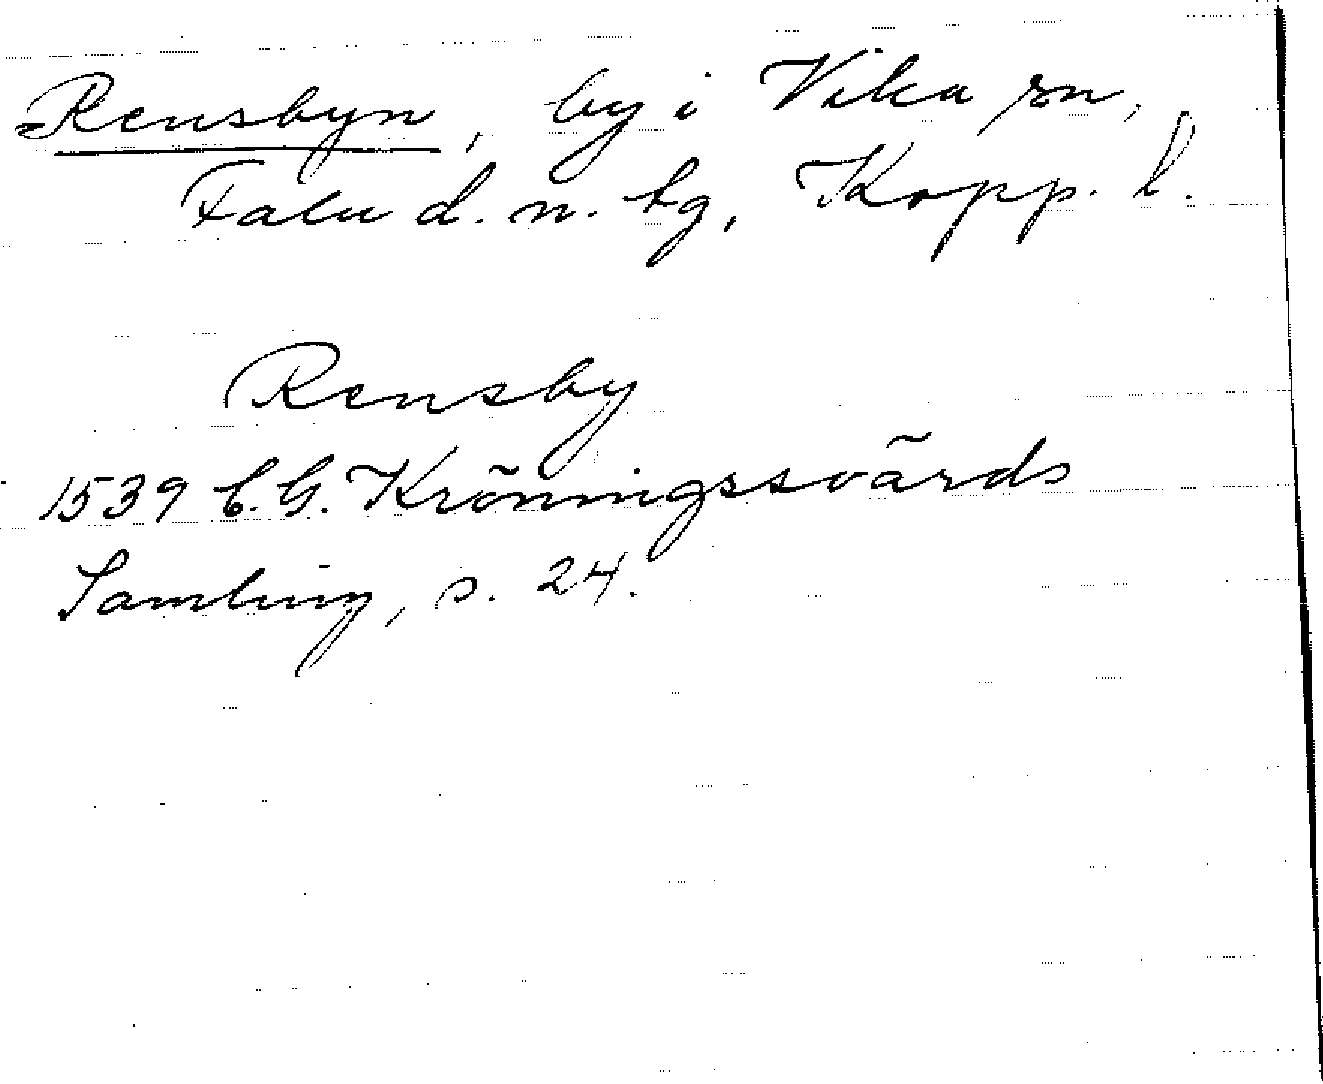 Rensbyn, by i Vika sn,
Falu d. n. tg, Kopp. l.
Rensby
1539 C.G. Kröningssvärds
Samling, s. 24.